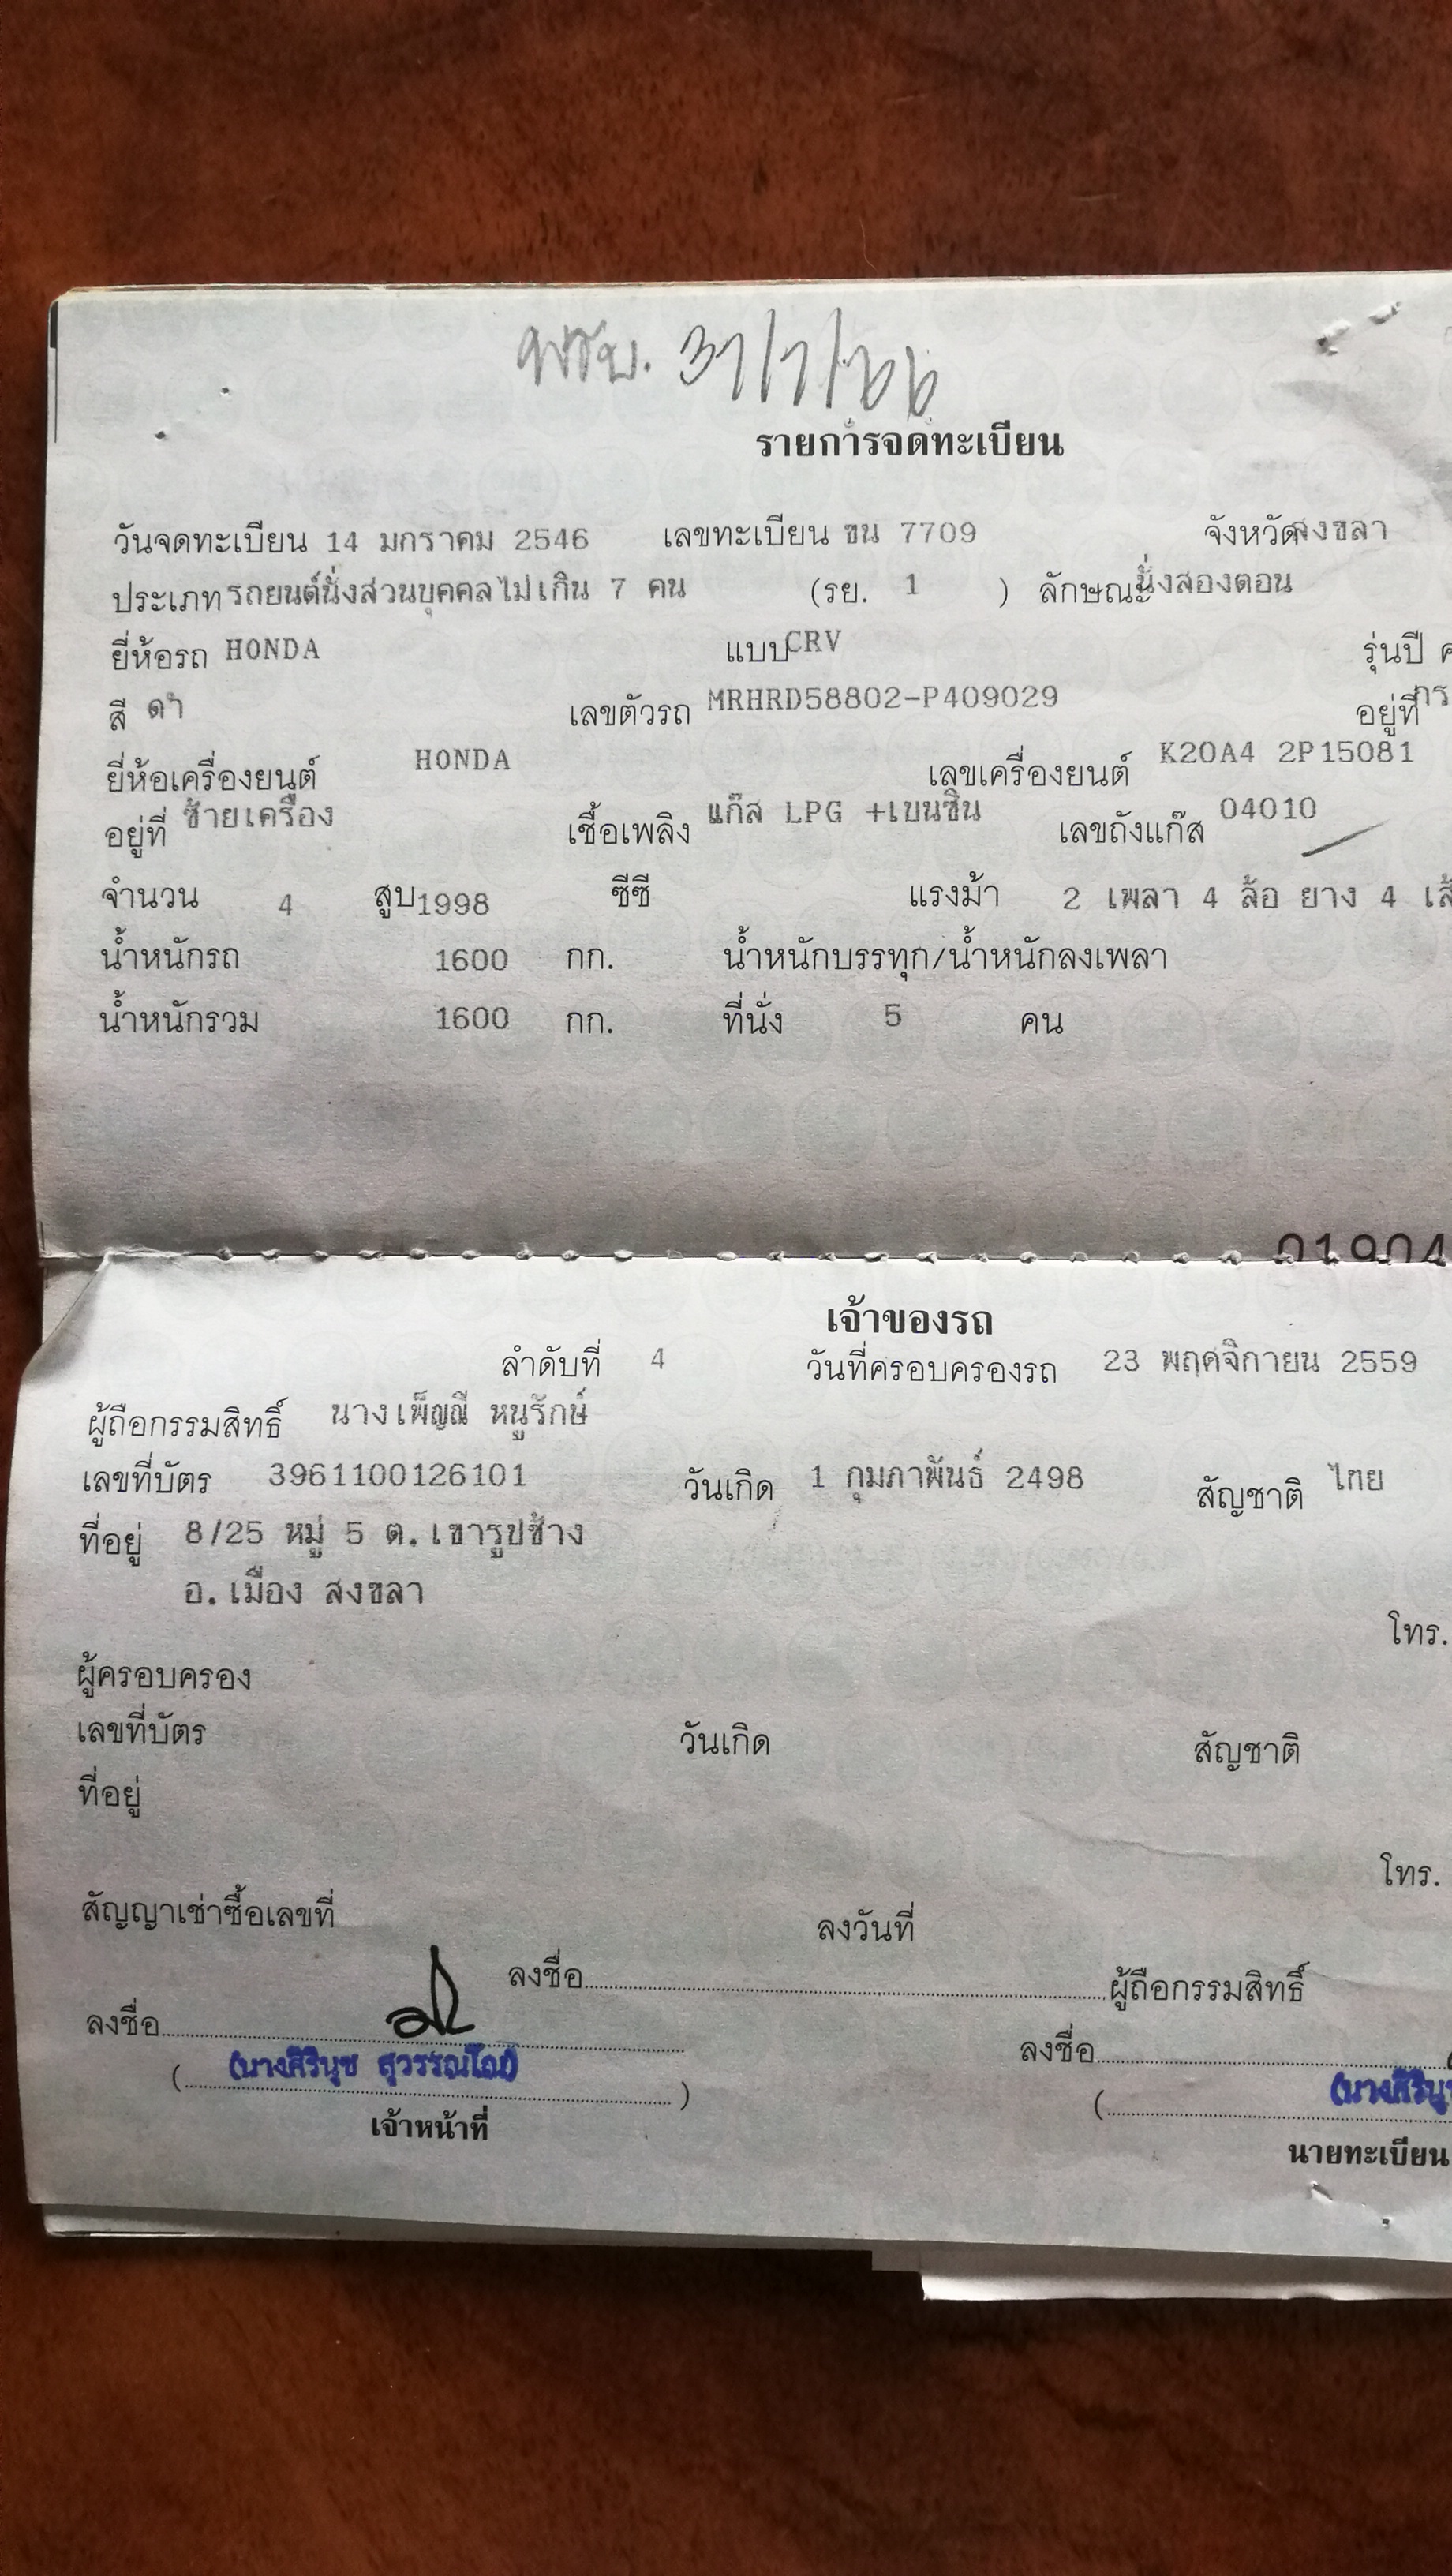 พรบ. 31/1/66
รายการจดทะเบียน
วันจดทะเบียน 14 มกราคม 2546 เลขทะเบียน ขน 7709 จังหวัดสงขลา
ประเภท รถยนต์นั่งส่วนบุคคลไม่เกิน 7 คน (รย. 1 ) ลักษณะนั่งสองตอน
ยี่ห้อรถ HONDA แบบ CRV รุ่นปี ค
สี ดำ เลขตัวรถ MRHRD58802-P409029 อยู่ที่ กร
ยี่ห้อเครื่องยนต์ HONDA เลขเครื่องยนต์ K20A4 2P15081
อยู่ที่ ซ้ายเครื่อง เชื้อเพลิง แก๊ส LPG +เบนซิน เลขถังแก๊ส 04010
จำนวน 4 สูบ 1998 ซีซี แรงม้า 2 เพลา 4 ล้อ ยาง 4 เส้
น้ำหนักรถ 1600 กก. น้ำหนักบรรทุก/น้ำหนักลงเพลา
น้ำหนักรวม 1600 กก. ที่นั่ง 5 คน
01904
เจ้าของรถ
ลำดับที่ 4 วันที่ครอบครองรถ 23 พฤศจิกายน 2559
ผู้ถือกรรมสิทธิ์ นางเพ็ญณี หนูรักษ์
เลขที่บัตร 3961100126101 วันเกิด 1 กุมภาพันธ์ 2498 สัญชาติ ไทย
ที่อยู่ 8/25 หมู่ 5 ต.เขารูปช้าง
อ.เมือง สงขลา
โทร.
ผู้ครอบครอง
เลขที่บัตร วันเกิด สัญชาติ
ที่อยู่
โทร.
สัญญาเช่าซื้อเลขที่ ลงวันที่
ลงชื่อ ผู้ถือกรรมสิทธิ์
ลงชื่อ ลงชื่อ
(นางศิรินุช สุวรรณโณ) (นางศิรินุ
เจ้าหน้าที่ นายทะเบียน